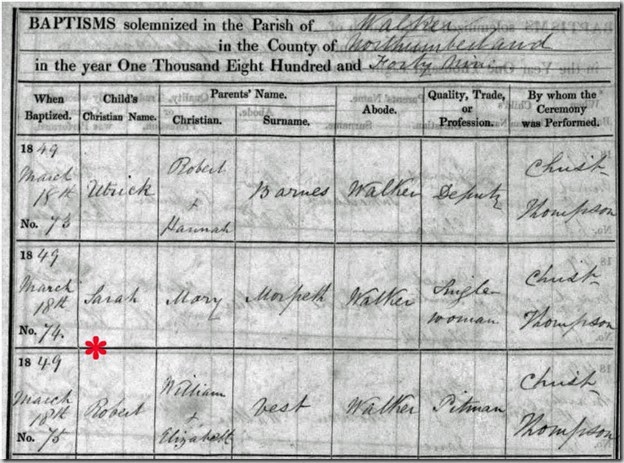 BAPTISMS solemnized in the Parish of Walker
in the County of Northumberland
in the year One Thousand Eight Hundred and Forty Nine
When Baptized.
Child's Christian Name.
Parents' Name.
Christian.
Surname.
Abode.
Quality, Trade, or Profession.
By whom the Ceremony was Performed.
1849
March
18th
No. 73
Robert
&
Hannah
Barnes
Walker
Deputy
Christ-
Thompson
1849
March
18th
No. 74.
Sarah
Mary
Morpeth
Walker
Single
woman
Christ-
Thompson
1849
March
18th
No. 75
Robert
William
&
Elizabeth
Vest
Walker
Pitman
Christ-
Thompson